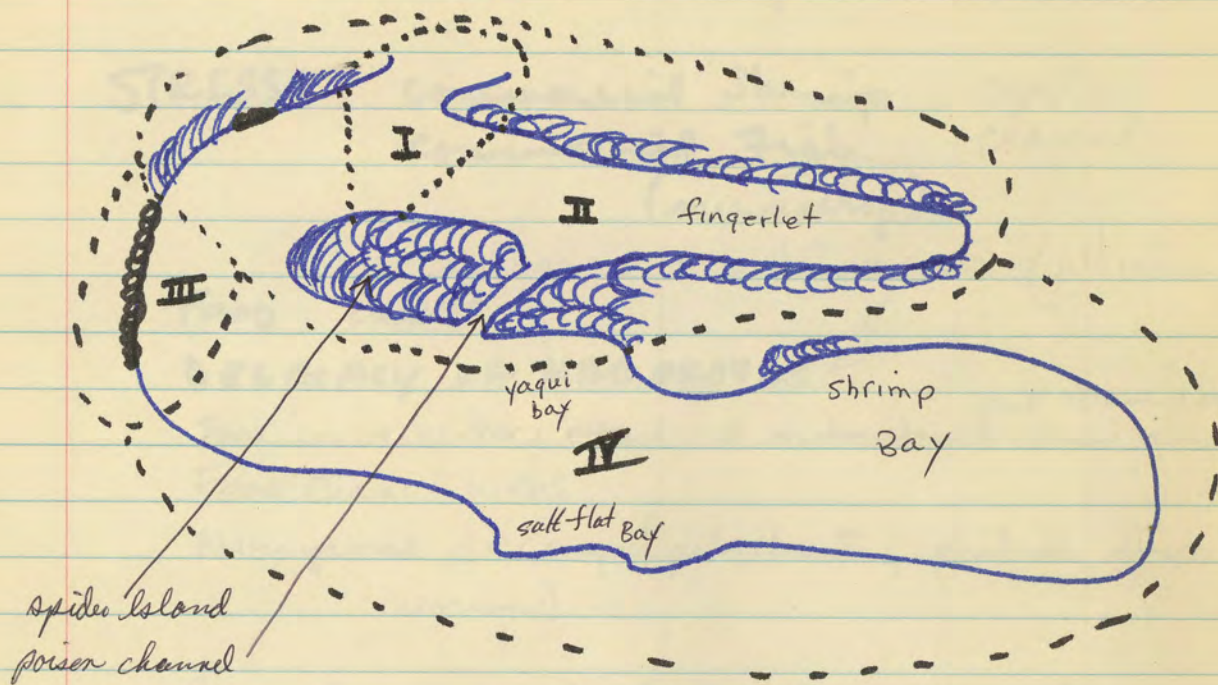 I
II
fingerlet
III
yaqui
bay
shrimp
Bay
IV
salt-flat Bay
spider Island
poison channel